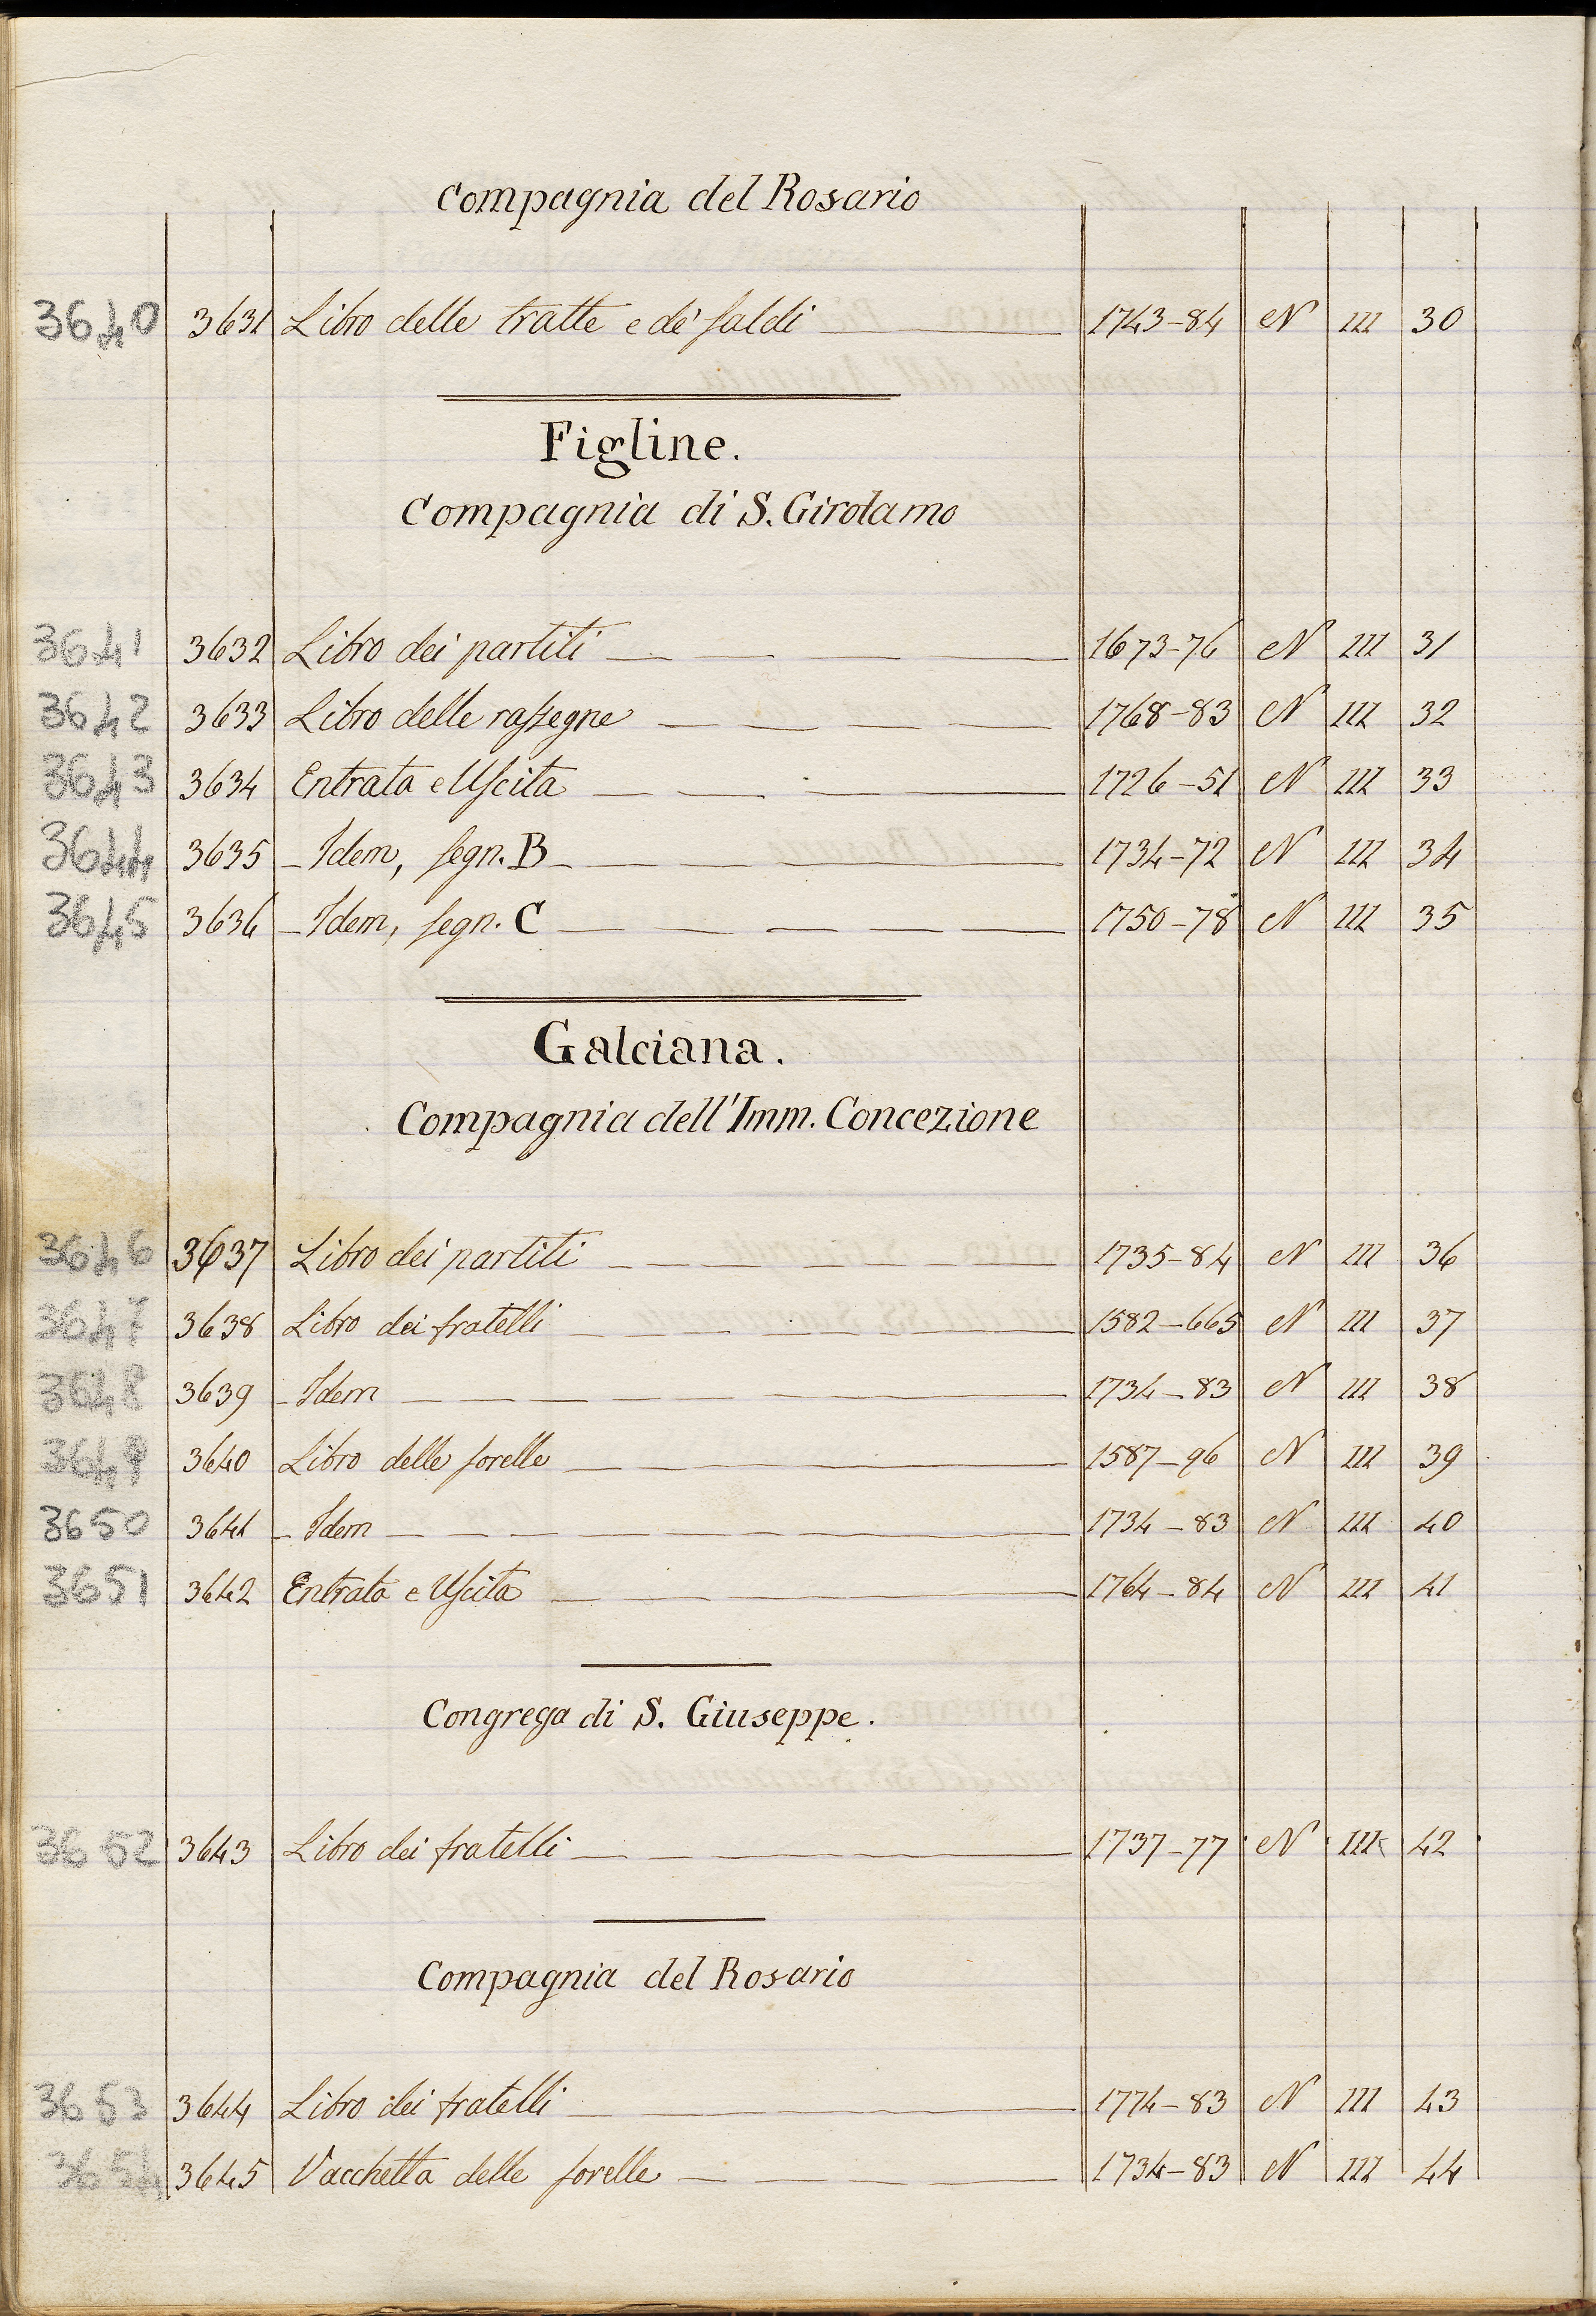 Compagnia del Rosario
3640 3631 Libro delle tratte e de' saldi 1743-84 N III 30
Figline.
Compagnia di S. Girolamo
3641 3632 Libro dei partiti 1673-76 N III 31
3642 3633 Libro delle rassegne 1768-83 N III 32
3643 3634 Entrata e Uscita 1726-51 N III 33
3644 3635 - Idem, segn. B 1734-72 N III 34
3645 3636 - Idem, segn. C 1750-78 N III 35
Galciana.
Compagnia dell'Imm. Concezione
3646 3637 Libro dei partiti 1735-84 N III 36
3647 3638 Libro dei fratelli 1582-665 N III 37
3648 3639 - Idem 1734-83 N III 38
3649 3640 Libro delle sorelle 1587-96 N III 39
3650 3641 - Idem 1734-83 N III 40
3651 3642 Entrata e Uscita 1764-84 N III 41
Congrega di S. Giuseppe.
3652 3643 Libro dei fratelli 1737-77 N III 42
Compagnia del Rosario
3653 3644 Libro dei fratelli 1774-83 N III 43
3654 3645 Vacchetta delle sorelle 1734-83 N III 44